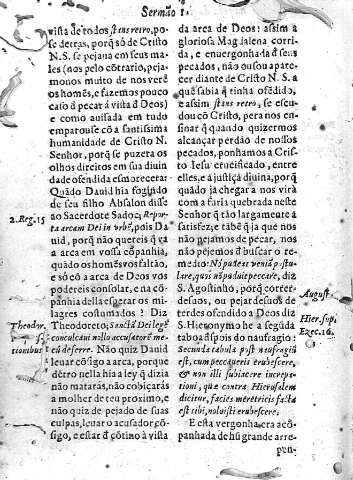 Sermão I.
vista de todos stans retro, po-
se detras, porq̃ só de Cristo
N. S. se pejaua em seus ma-
les (nos pelo cõtrario, peja-
monos muito de nos verẽ
os homẽs, e fazemos pouco
caso d̃ pecar á vista d̃ Deos)
e como auisada em tudo
emparouse cõ a santissima
humanidade de Cristo N.
Senhor, porq̃ se puzera os
olhos direitos em sua diuin
dade ofendida esmorecera.
Quãdo Dauid hia fogindo
de seu filho Absalon disse
ao Sacerdote Sadoc; Repor-
2. Reg. 15
ta arcam Dei in vrbẽ, pois Da
uid, porq̃ não quereis q̃ vá
a arca em vossa cõpanhia,
quãdo os homẽs vos faltão,
e só cõ a arca de Deos vos
podereis consolar, e na cõ-
panhia della esperar os mi-
lagres costumados? Diz
Theodoreto; Sanctã Dei legẽ
Theodor.
concul
tionibus
mecũ deserre. Não quiz Dauid
leuar cõsigo a arca, porque
dẽtro nella hia a ley q̃ dizia
não matarás, não cobiçarás
a molher de teu proximo, e
não quiz de pejado de suas
culpas, leuar o acusador cõ-
sigo, e estar d̃ cõtino á vista
da arca de Deos: assim a
gloriosa Magdalena corri-
da, e enuergonhada d̃ seus
pecados, não ousou apare-
cer diante de Cristo N. S. a
quẽ sabia q̃ tinha ofẽdido,
e assim stans retro, se escu-
dou cõ Cristo, pera nos en-
sinar q̃ quando quizermos
alcançar perdão de nossos
pecados, ponhamos a Cris-
to Iesu crucificado, entre
elles, e a justiça diuina, porq̃
quãdo já chegar a nos virá
com a furia quebrada neste
Senhor q̃ tão largamente a
satisfez; e tãbẽ q̃ ja que nos
não pejamos de pecar, nos
não pejemos d̃ buscar o re-
medio: Nõ pudeat veniã postu-
lare, quẽ nõ puduit peccare, diz
S. Agostinho, porq̃ correr-
des uos, ou pejardes uos de
terdes ofendido a Deos diz
August.
S. Hieronymo he a segũda
Hier. sup.
taboa d̃spois do naufragio:
Ezec. 16.
Secunda tabula post naufragiũ
est, cum peccaueris erubescere,
& non illi subiacere increpa-
tioni, quæ contra Hierusalem
dicitur, facies meretricis facta
est tibi, noluisti erubescere.
E esta vergonha era acõ-
panhada de hũ grande arre-
pen-